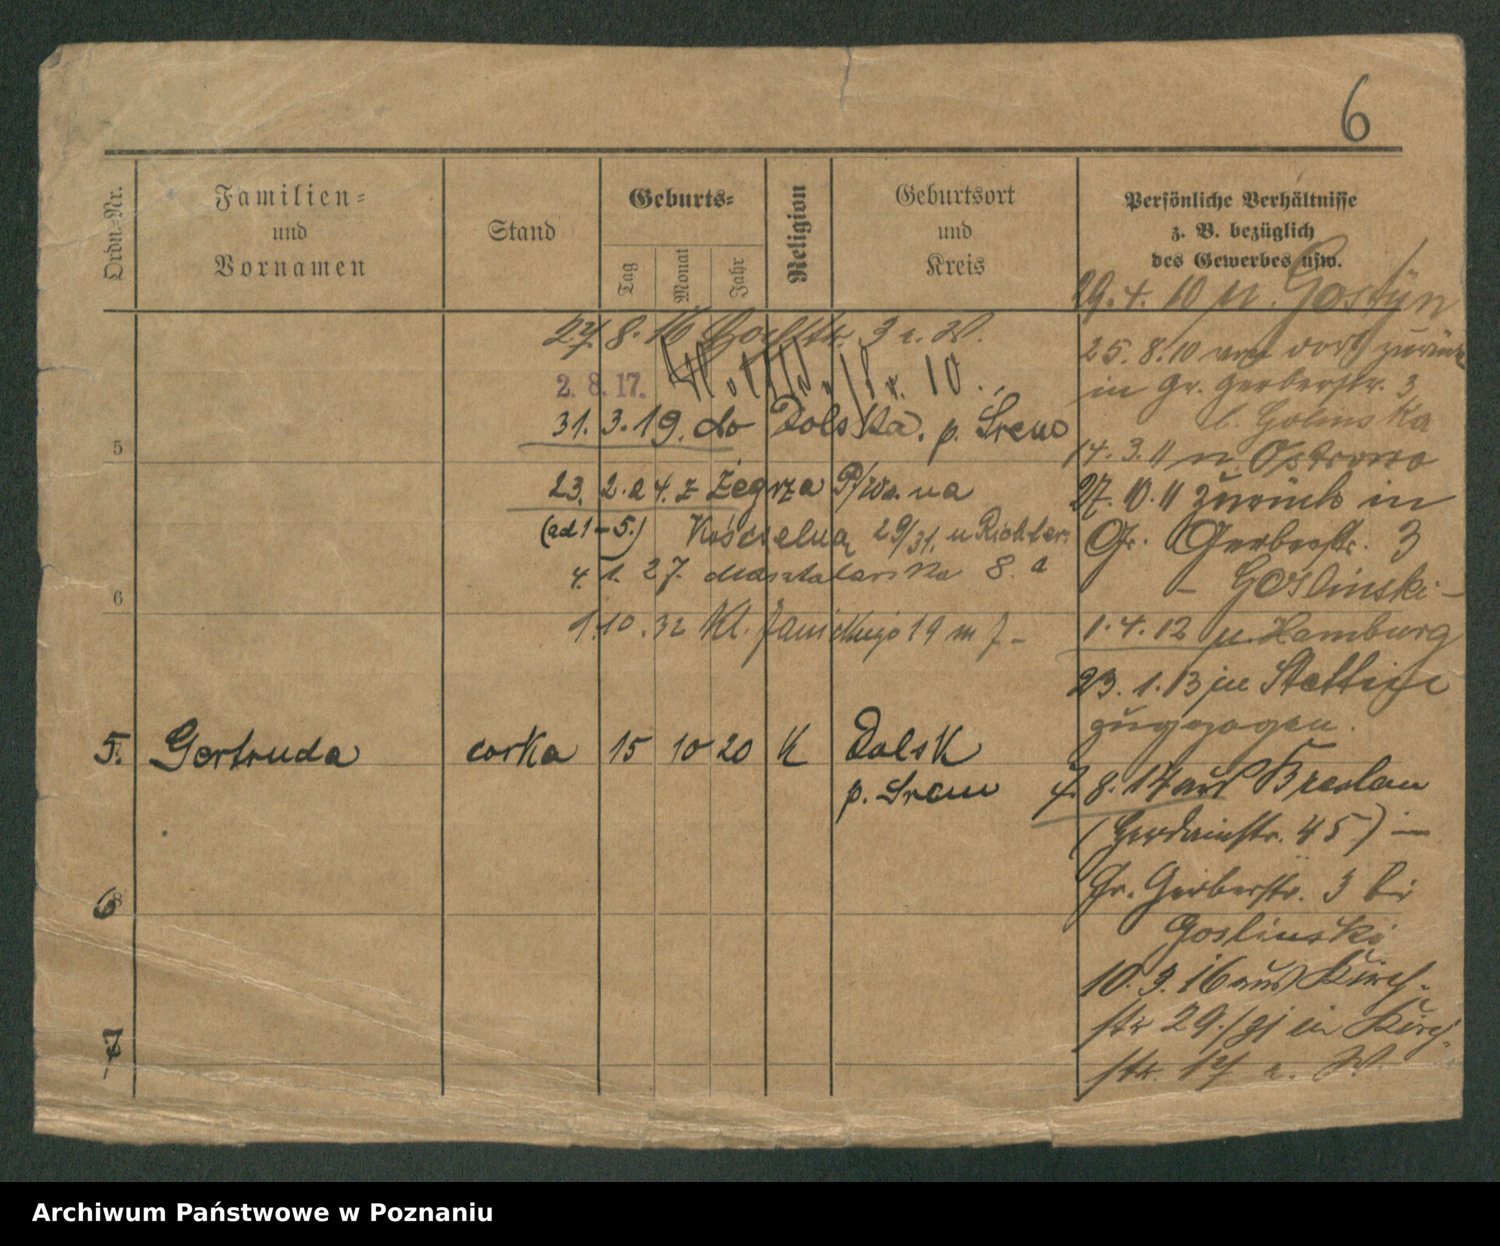 6
Ordn.-Nr.
Familien-
und
Vornamen
Stand
Geburts-
Tag
Monat
Jahr
Religion
Geburtsort
und
Kreis
Persönliche Verhältnisse
z. B. bezüglich
des Gewerbes usw.
27. 8. 16 3 e. W.
2. 8. 17.
31. 3. 19. do Dolska, p. Śrem
23. 2. 24. z Żegrza
(ad 1-5.) Kościelna 29/31. u Richter.
4. 1. 27. Masztalarska 8.a
1.10.32 Kl. Janickiego 19 m 7-
5
6
5. Gertruda corka 15 10 20 K Dolsk
p. Śrem
6
7
29. 4. 10 n. Gostyn
25. 8. 10 von dort zurück
in Gr. Gerberstr. 3
b. Golinska
14. 3. 11 n. Ostrowo
27. 10. 11 zurück in
Gr. Gerberstr. 3
- Goslinski -
1. 4. 12 n. Hamburg
23. 1. 13 in Stettin
zugezogen.
7. 8. 14 aus Breslau
45) -
Gr. Gerberstr. 3 bei
Goslinski
10. 3. 16 aus Kirch-
str 29. in Kirch-
str. 17 e. W.
Archiwum Państwowe w Poznaniu